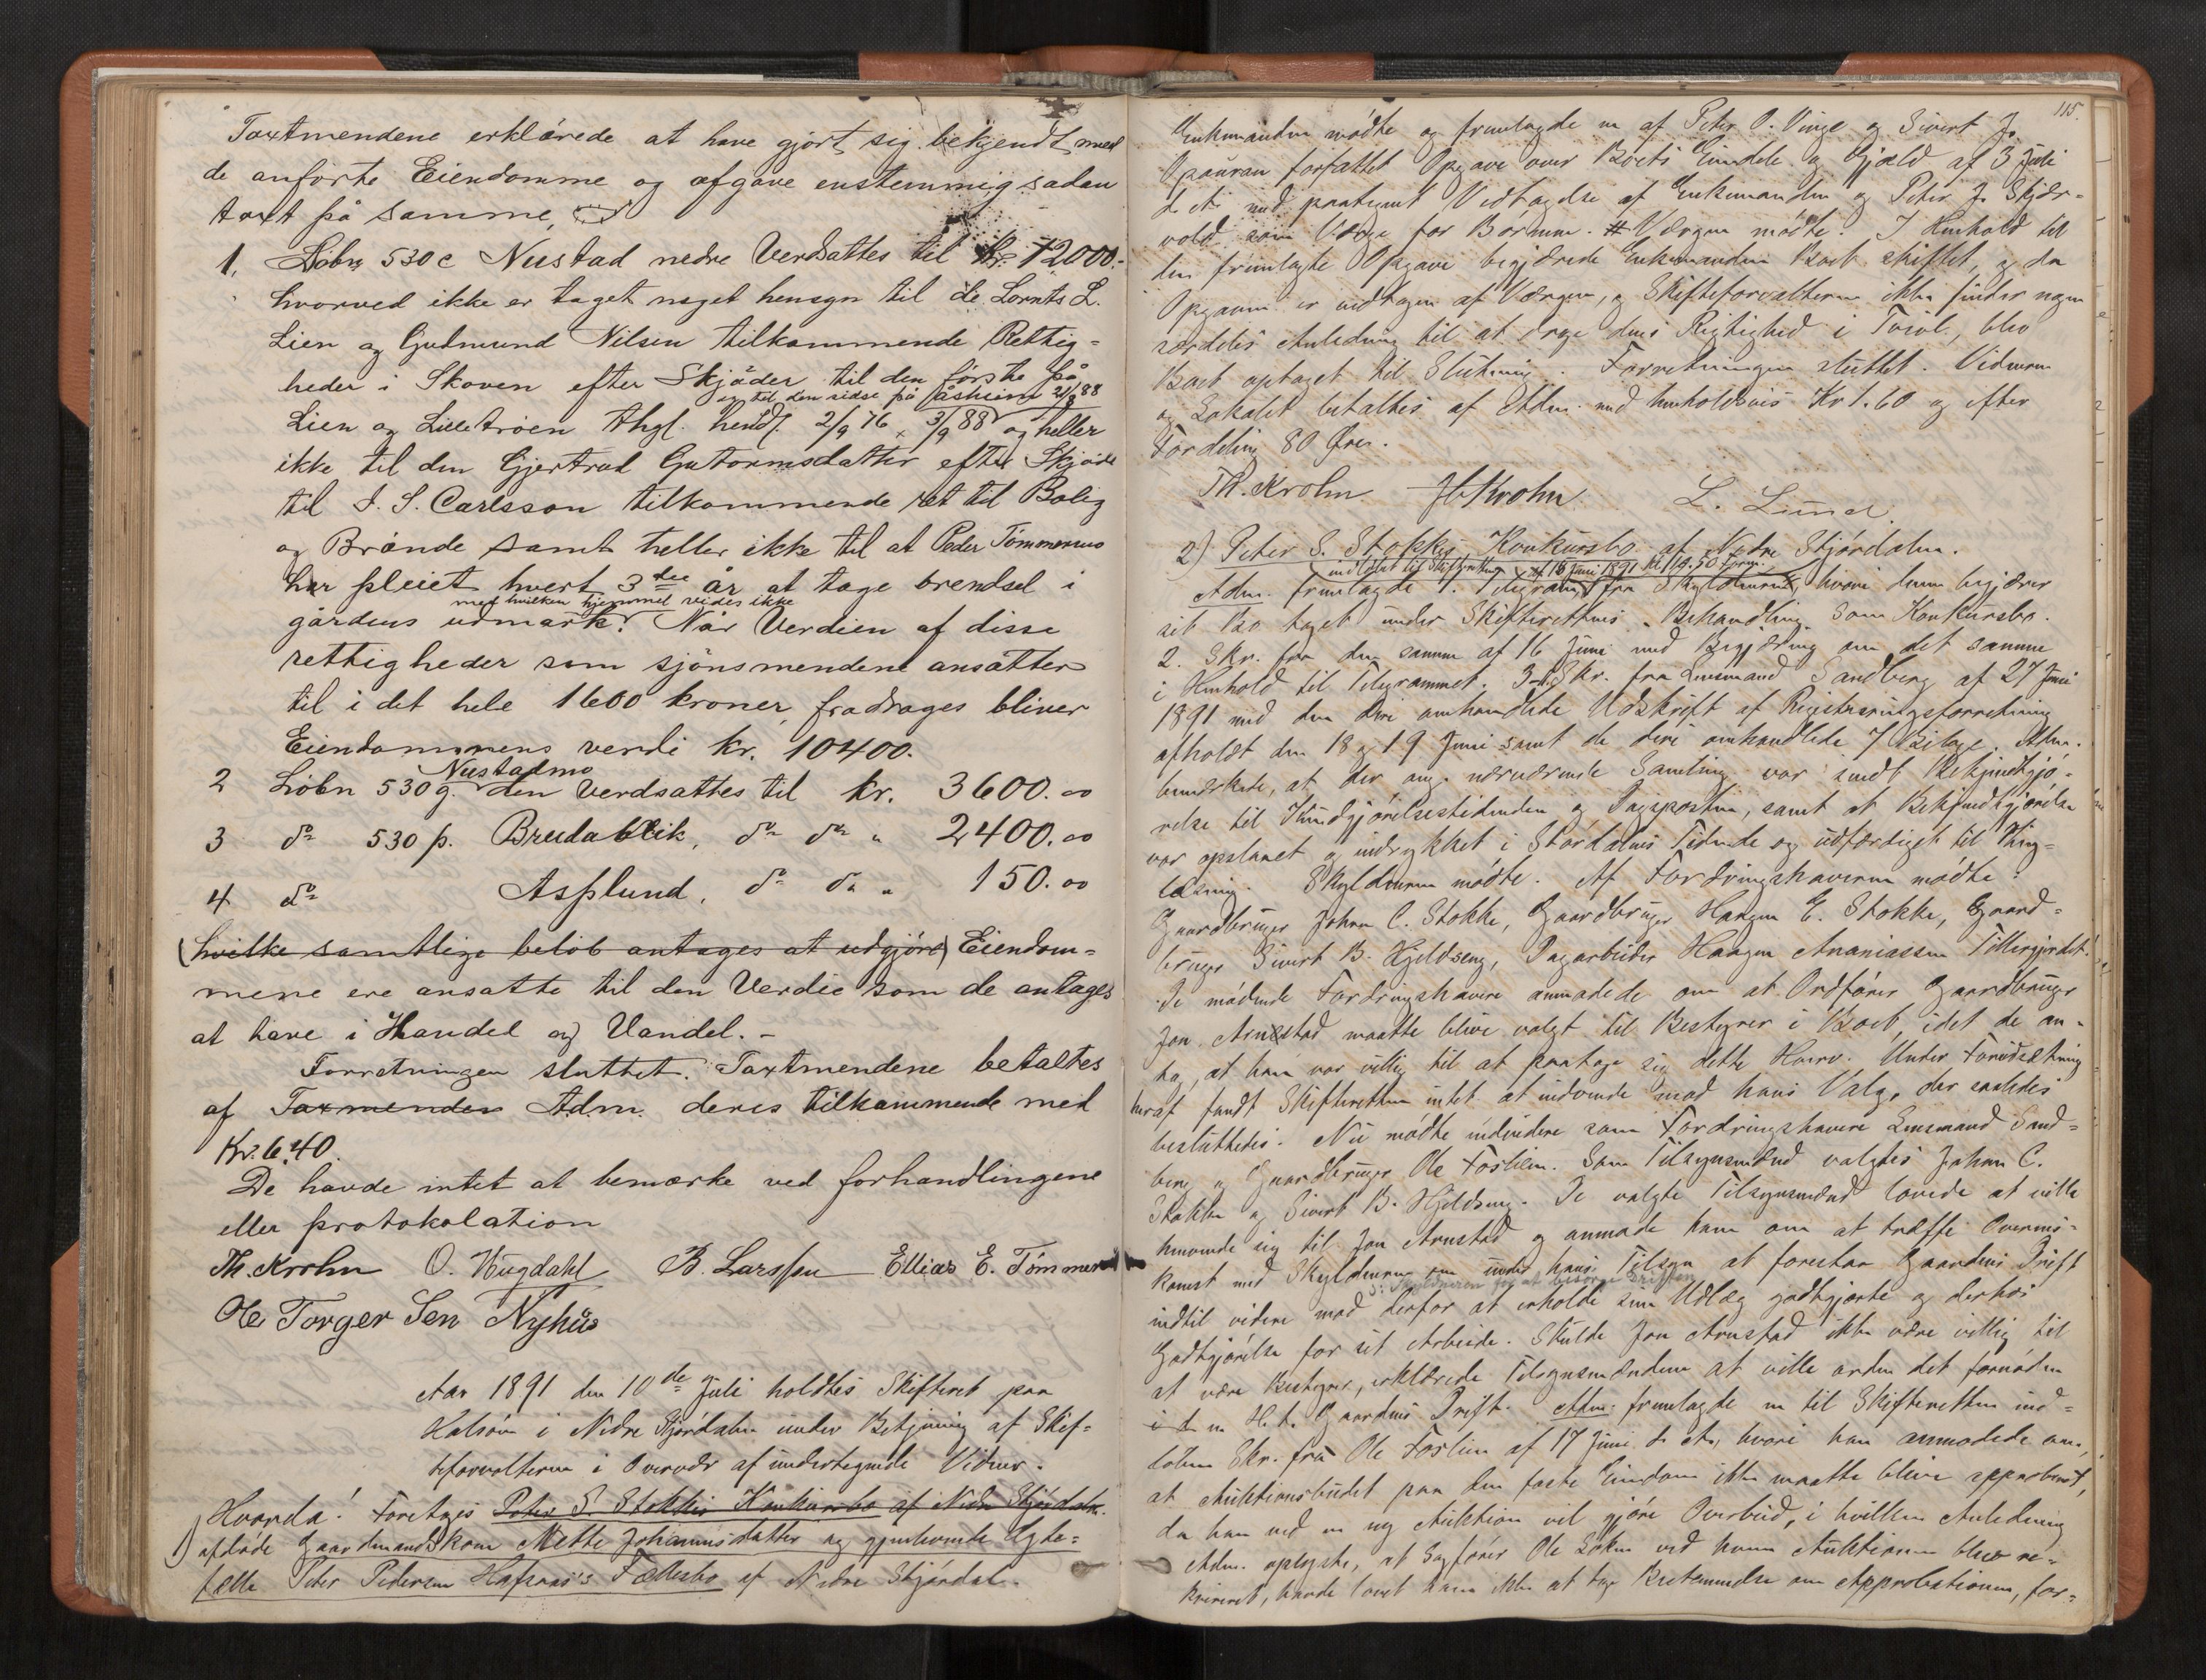 Taxtmendene erklärede at have gjört sig bekjendt med
de anförte Eiendomme og afgave enstemmig sådan
taxt på samme
1. Löbn 530c Nustad nedre Verdsattes til Kr. 12000.-
hvorved ikke er taget noget hensyn til de Lornts L.
Lien og Gudmund Nilsen tilkommende Rettig=
heder i Skoven efter Skjöder til den förste på
og til den sidse på Åsheim 21/8 88
Lien og Lilletröen thgl. hendf. 2/9 76, 3/9 88 og heller
ikke til den Gjertrud Gutormsdatter efter Skjöde
til J. S. Carlsson tilkommende ret til Bolig
og Brände samt heller ikke til at Peder Tömmermo
har pleiet hvert 3die år at tage brendsel i
med hvilken hjemmel vides ikke
gårdens udmark. Når Verdien af disse
rettigheder som sjönsmendene ansätter
til i det hele 1600 kroner, fradrages bliver
Eiendommens verdi kr. 10400.
Nustadmo
2 Löbn 530g. den Verdsattes til kr. 3600.00
3 do 530 p. Bredablik, do do " 2400.00
4 do Asplund, do do " 150.00
(hvilke samtlige belöb antages at udgjöre) Eiendom=
mene ere ansatte til den Verdie som de antages
at have i Handel og Vandel. -
Forretningen sluttet. Taxtmendene betaltes
af Taxmenden Adm. deres tilkommende med
Kr. 6.40.
De havde intet at bemærke ved forhandlingene
eller protokolation
Th. Krohn O. Hugdahl B. Larssen Ellias E. Tömmer
Ole Torger Sen Nyhus
Aar 1891 den 10de Juli holdtes Skifteret paa
Halsöen i Nedre Stjördalen under Betjening af Skif=
teforvalteren i Overvær af undertegnede Vidner.
Hvorda! Foretoges Peter S. Stokkes Konkursbo af Nedre Stjördalen.
1) afdöde Gaardmandskone Mette Johannesdatter og gjenlevende Ægte=
fælle Peter Pedersen Hafsaas's Fællesbo af Nedre Stjördal.
115.
Enkemanden mödte og fremlagde en af Peter O. Vinge og Sivert Js.
Opauran forfattet Opgave over Boets Eiendele og Gjæld af 3 Juli
d. A. med paategnet Vedtagelse af Enkemanden og Peter J. Skjær-
vold som Værge for Börnene. # Værgen mödte. I Henhold til
den fremlagte Opgave begjærede Enkemanden Boet skiftet, og da
Opgaven er vedtagen af Værgen, og Skifteforvalteren ikke finder nogen
særdeles Anledning til at drage dens Rigtighed i Tvivl, blev
Boet optaget til Slutning. Forretningen sluttet. Vidnerne
og Lokalet betaltes af Adm. med henholdsvis Kr 1.60 og efter
Fordeling 80 Öre.
Th. Krohn JCKrohn. L. Lund.
2) Peter S. Stokkes Konkursbo af Nedre Stjördalen.
indlöbet til Skifteretten af 16 Juni 1891 Kl. 10.50 Form.
Adm. fremlagde 1. Telegram fra Skyldneren, hvori han begjærer
sit Bo taget under Skifterettens Behandling som Konkursbo.
2. Skr. fra den samme af 16 Juni med Begjæring om det samme
i Henhold til Telegrammet. 3. Skr. fra Lensmand Sandberg af 27 Juni
1891 med den deri omhandlede Udskrift af Registreringsforretning
afholdt den 18 og 19 Juni samt de deri omhandlede 7 Bilage. Adm.
bemærkede, at der ang. nærværende Samling var sendt Bekjendtgjö-
relse til Kundgjörelsestidenden og Dagsposten, samt at Bekjendtgjörelse
var opslaaet og indrykket i Stördalens Tidende og udfærdiget til Thing-
læsning. Skyldneren mödte. Af Fordringshaverne mödte:
Gaardbruger Johan C. Stokke, Gaardbruger Haagen E. Stokke, Gaard=
bruger Sivert B. Hjeldseng, Dagarbeider Haagen Ananiassen Tillergjerdet.
De mödende Fordringshavere anmodede om at Ordförer Gaardbruger
Jon Arnstad maatte blive valgt til Bestyrer i Boet, idet de an-
tog, at han var villig til at paatage sig dette Hverv. Under Forudsætning
heraf fandt Skifteretten intet at indvende mod hans Valg, der saaledes
besluttedes. Nu mödte endvidere som Fordringshavere Lensmand Sand=
berg og Gaardbruger Ole Foslien. Som Tilsynsmænd valgtes Johan C.
Stokke og Sivert B. Hjeldseng. De valgte Tilsynsmænd lovede at ville
henvende sig til Jon Arnstad og anmode ham om at træffe Overens=
komst med Skyldneren om under hans Tilsyn at forestaa Gaardens Drift
indtil videre mod derfor at erholde sine Udlæg godtgjorte og derhos
Godtgjörelse for sit Arbeide. Skulde Jon Arnstad ikke være villig til
at være Bestyrer, erklærede Tilsynsmændene at ville ordne det fornödne
i d m H. t. Gaardens Drift. Adm. fremlagde en til Skifteretten ind=
löben Skr. fra Ole Foslien af 17 Juni d. A., hvori han anmodede om,
at Auktionsbudet paa den faste Eiendom ikke maatte blive approberet,
da han ved en ny Auktion vil gjöre Overbud, i hvilken Anledning
Adm. oplyste, at Sagförer Ole Löken ved hvem Auktionen blev re=
kvireret, havde lovet ham ikke at tage Bestemmelse om Approbationen, for=